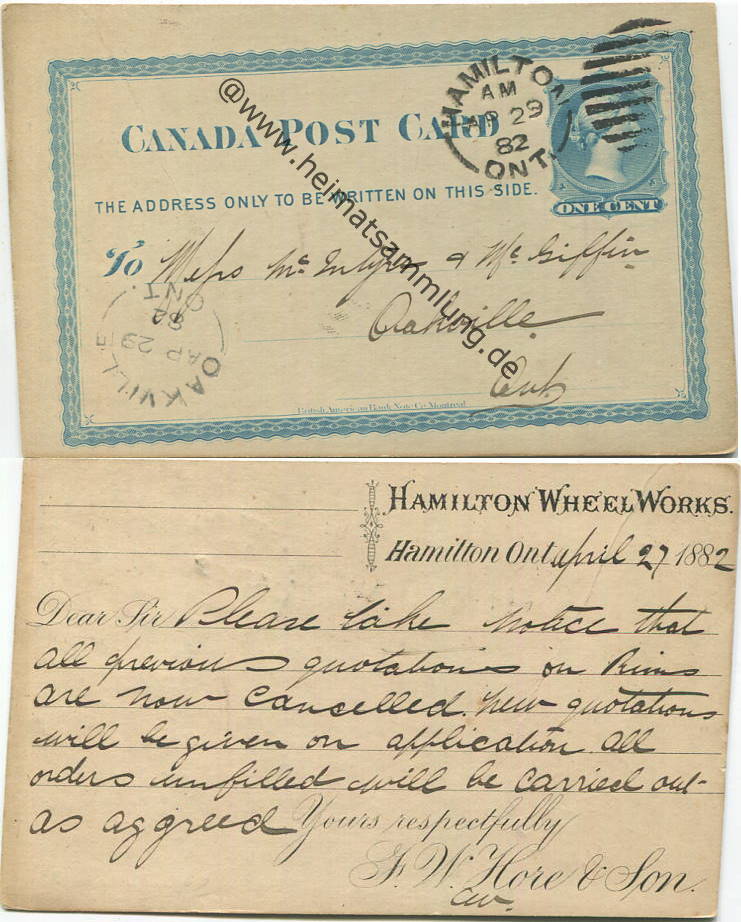 CANADA POST CARD
HAMILTON
AM
AP 29
82
ONT.
THE ADDRESS ONLY TO BE WRITTEN ON THIS SIDE.
ONE CENT
@www.heimatsammlung.de
To Mess Mc Intyre & Mc Giffin
Oakville
Ont
OAKVILLE
AP 29
82
ONT.
British American Bank Note Co. Montreal
HAMILTON WHEEL WORKS.
Hamilton Ont april 27 1882
Dear Sir Please take Notice that
all previous quotations on Rims
are now cancelled. new quotations
will be given on application. all
orders unfilled will be carried out
as aggreed Yours respectfully
F. W. Hore & Son.